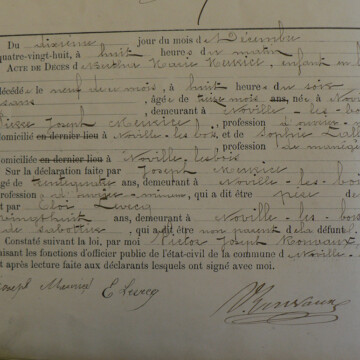 Du dixième jour du mois de Décembre
quatre-vingt-huit, à huit heures du matin
ACTE DE DÉCÈS d Marie Meurice, enfant
décédé e le neuf de ce mois, à huit heures du soir
sans , âgée de treize mois ans, né e à
, demeurant à Noville-les-
Joseph Meurice , profession d'ouvrier
domicilié en dernier lieu à Noville-les-bois, et de Sophie
, profession de ménagère
domiciliée en dernier lieu à Noville-les-bois
Sur la déclaration faite par Joseph Meurice
âgé de ans, demeurant à Noville-les-bois
profession d'ouvrier , qui a dit être père de
et par Eloi Levecq
vingt huit ans, demeurant à Noville-les-bois
de sabotier , qui a dit être non parent de la défunt
Constaté suivant la loi, par moi Victor Joseph
faisant les fonctions d'officier public de l'état-civil de la commune d Noville-
et après lecture faite aux déclarants lesquels ont signé avec moi.
Joseph Meurice E Levecq